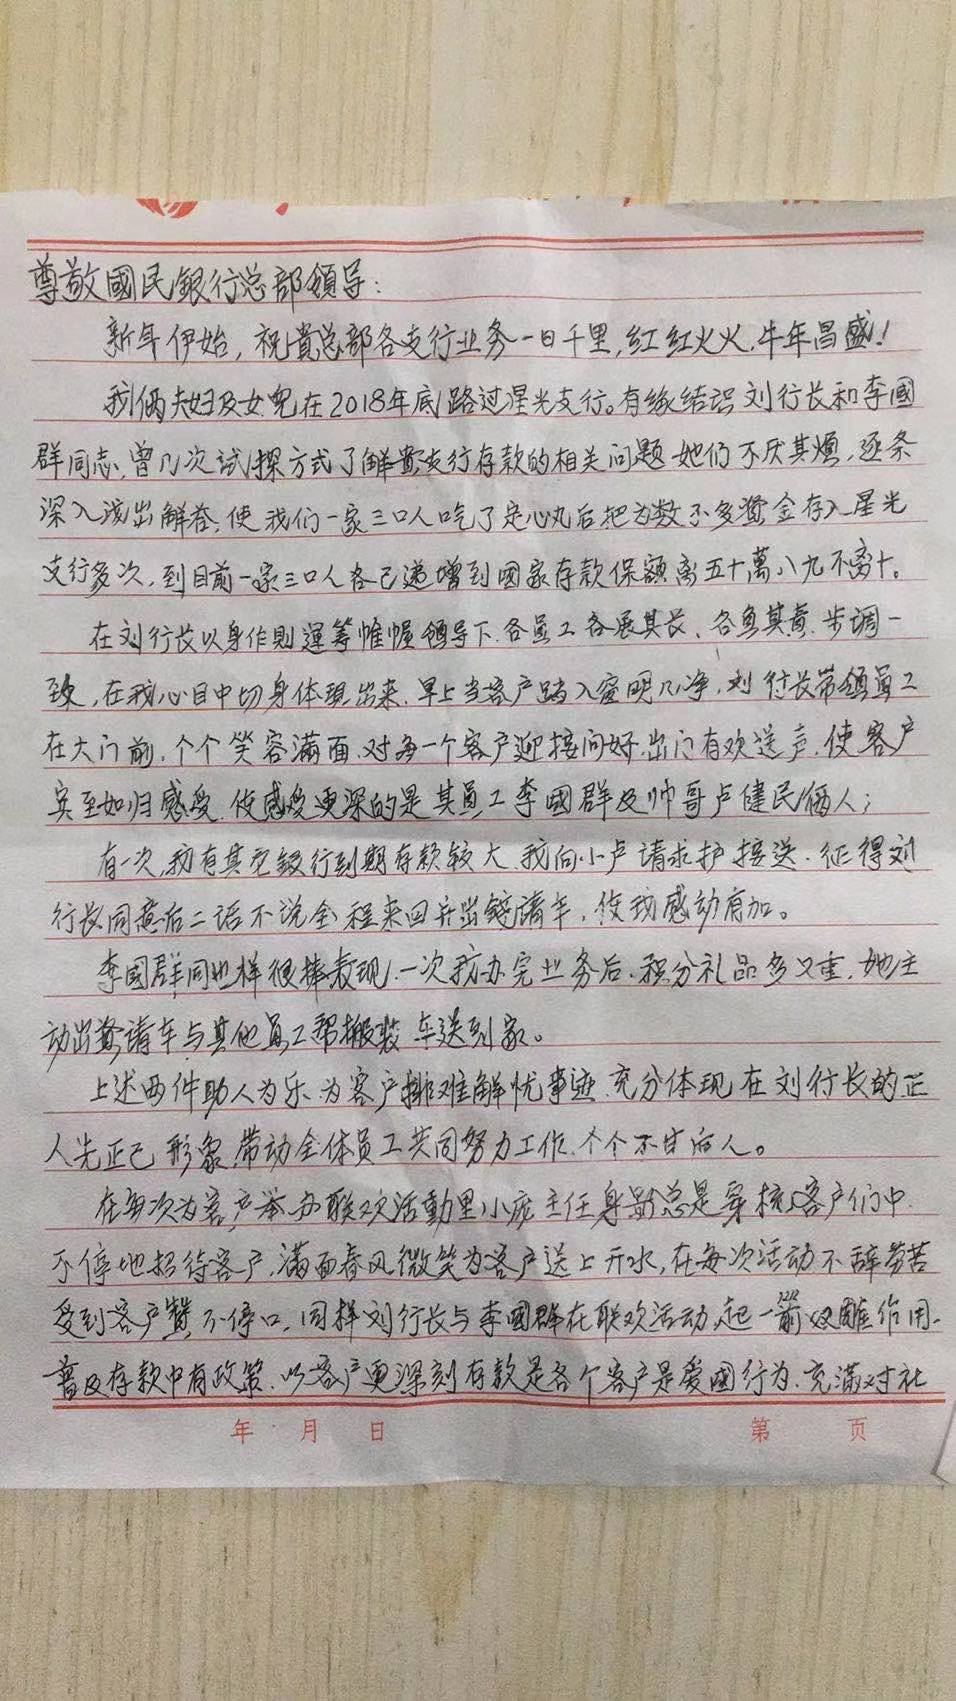 尊敬國民銀行总部領导:
新年伊始,祝貴总部各支行业务一日千里,红红火火,牛年昌盛!
我俩夫妇及女兒在2018年底路过星光支行。有缘结识刘行长和李國
群同志、曾几次试探方式了解貴支行存款的相关问题她们不厌其煩,逐条
深入浅出解答,使我们一家三口人吃了定心丸后把为数不多資金存入星光
支行多次,到目前一家三口人各已递增到國家存款保額离五十萬八九不离十。
在刘行长以身作則運筹帷幄領导下.各員工各展其长、各負其責.步调一
致,在我心目中切身体現出来.早上当客户踏入窗明几净,刘行长带領員工
在大门前.个个笑容满面.对每一个客户迎接问好.出门有欢送声.使客户
宾至如归感受.使感受更深的是其員工李國群及帅哥卢健民俩人;
有一次,我有其它銀行到期存款较大.我向小卢请求护接送.征得刘
行长同意后二话不说全程来回并出錢請车,使我感动有加。
李國群同也样很棒表现.一次我办完业务后.积分礼品多又重.她主
动出資请车与其他員工帮搬装车送到家。
上述两件助人为乐.为客户排难解忧事迹.充分体现在刘行长的正
人先正己形象.带动全体员工共同努力工作.个个不甘后人。
在每次为客户举办联欢活動里小庞主任身影总是穿梭客户们中.
不停地招待客户.满面春风微笑为客户送上开水,在每次活动不辞劳苦
受到客户贊不停口.同样刘行长与李國群在联欢活动.起一箭双雕作用.
普及存款中有政策.以客户更深刻存款是各个客户是爱國行为.充满对社
年 月 日 第 页